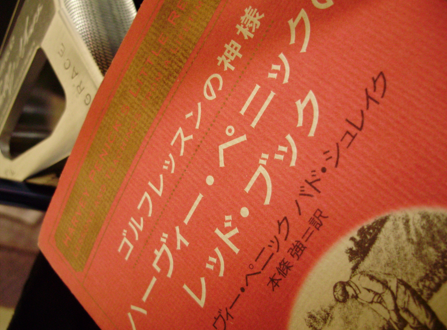 ゴルフレッスンの神様
ハーヴィー・ペニックの
レッド・ブック
ヴィー・ペニック バド・シュレイク
本條 強=訳
GRACE